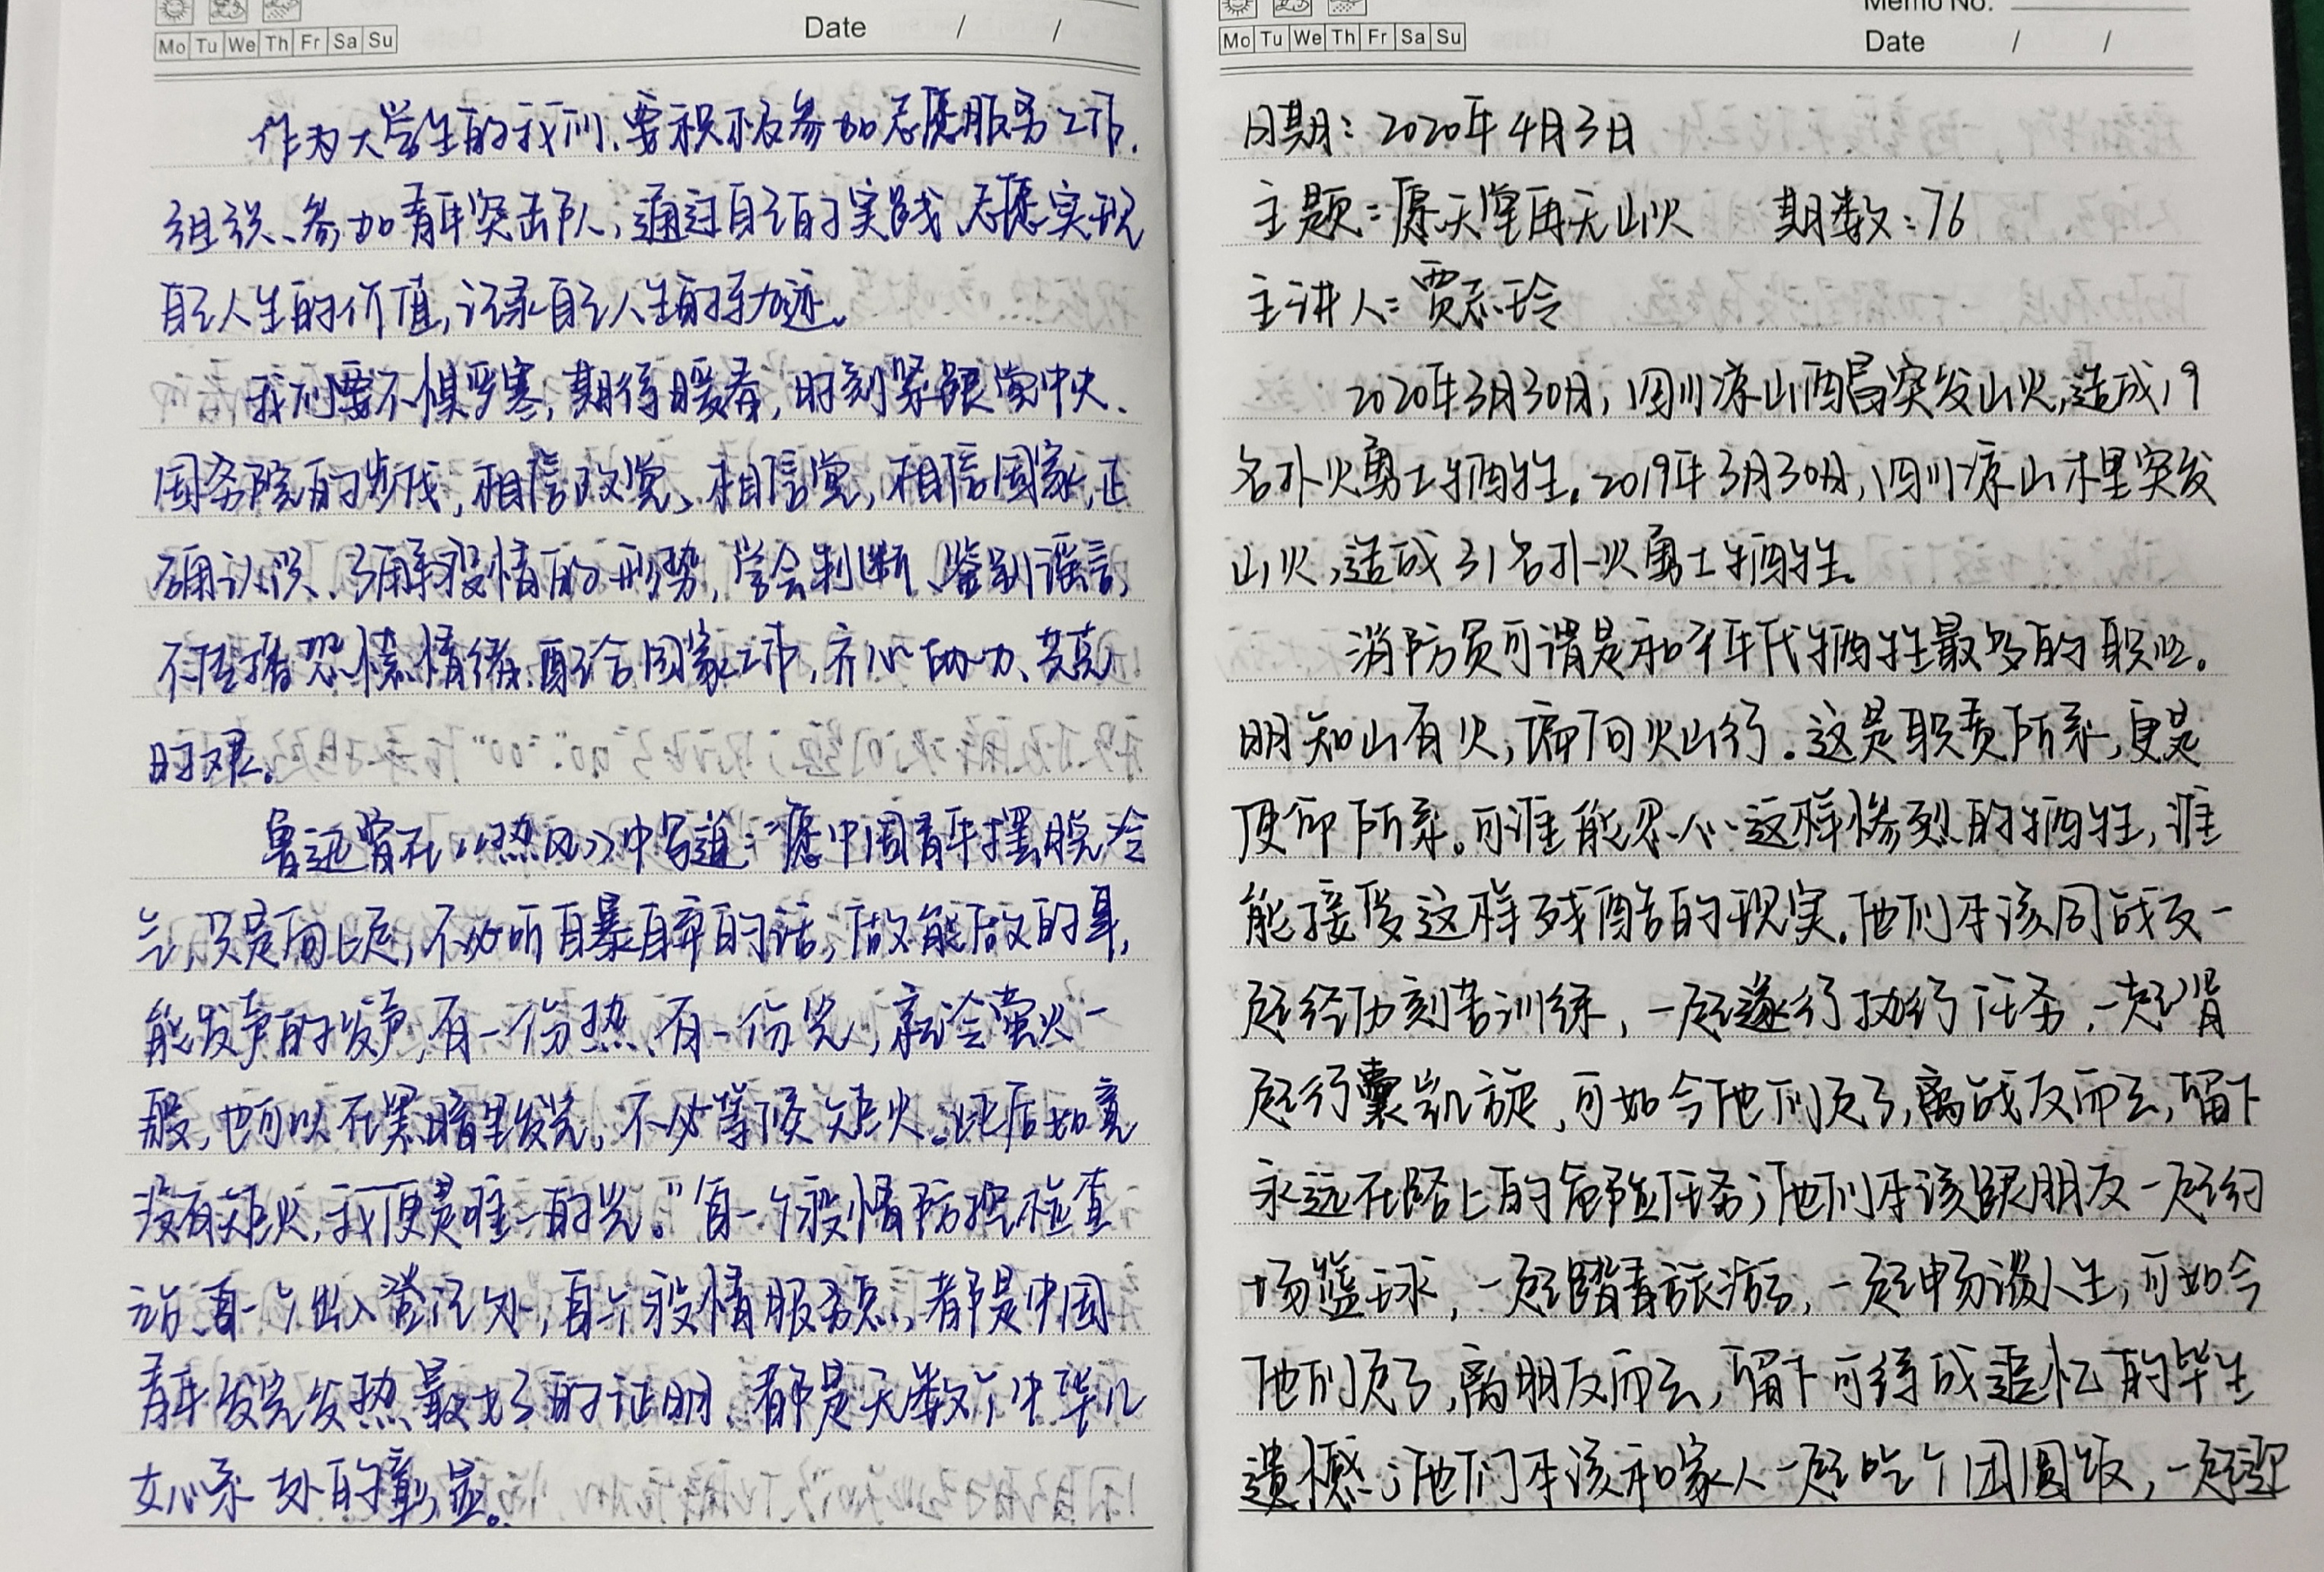 Mo Tu We Th Fr Sa Su
Date / /
作为大学生的我们,要积极参加志愿服务工作,
组织、参加青年突击队,通过自己的实践、志愿实现
自己人生的价值,记录自己人生的轨迹。
我们要不惧严寒,期待暖春,时刻紧跟党中央、
国务院的步伐,相信政党、相信党,相信国家,正
确认识、了解疫情的形势,学会判断、鉴别谣言,
不传播恐慌情绪,配合国家工作,齐心协力、共克
时艰。
鲁迅曾在《热风》中写道:“愿中国青年摆脱冷
气,只是向上走,不必听自暴自弃的话,做能做的事,
能发声的发声,有一份热、有一份光,就令萤火一
般,也可以在黑暗里发光,不必等候炬火。此后如竟
没有炬火,我便是唯一的光。”每一个疫情防控检查
站、每一个出入登记处,每个疫情服务点,都是中国
青年发光发热最好的证明,都是无数个中华儿
女心系一处的彰显。
Mo Tu We Th Fr Sa Su
Memo No.
Date / /
日期:2020年4月3日
主题:愿天堂再无山火 期数:76
主讲人:贾志玲
2020年3月30日,四川凉山西昌突发山火,造成19
名扑火勇士牺牲。2019年3月30日,四川凉山木里突发
山火,造成31名扑火勇士牺牲。
消防员可谓是和平年代牺牲最多的职业。
明知山有火,偏向火山行。这是职责所系,更是
使命所系。可谁能忍心这样惨烈的牺牲,谁
能接受这样残酷的现实。他们本该同战友一
起经历刻苦训练,一起逆行执行任务,一起背
起行囊凯旋,可如今他们走了,离战友而去,留下
永远在路上的任务;他们本该跟朋友一起约
场篮球,一起踏青旅游,一起畅谈人生,可如今
他们走了,离朋友而去,留下可待成追忆的毕生
遗憾;他们本该和家人一起吃个团圆饭,一起